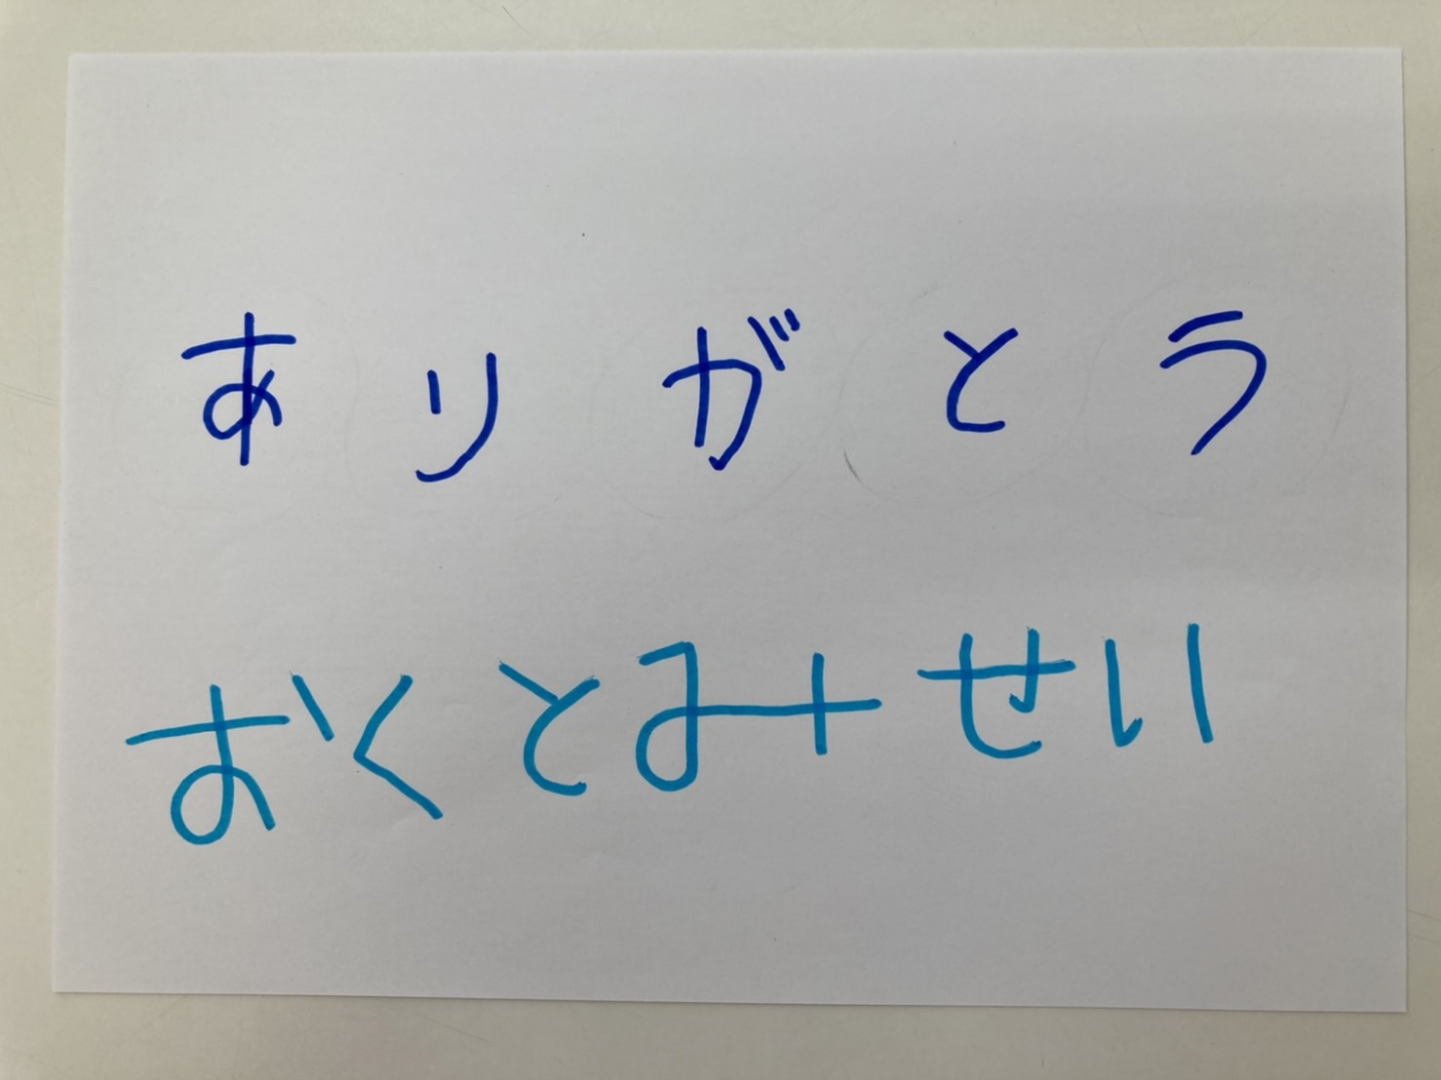 ありがとう
おくとみせい